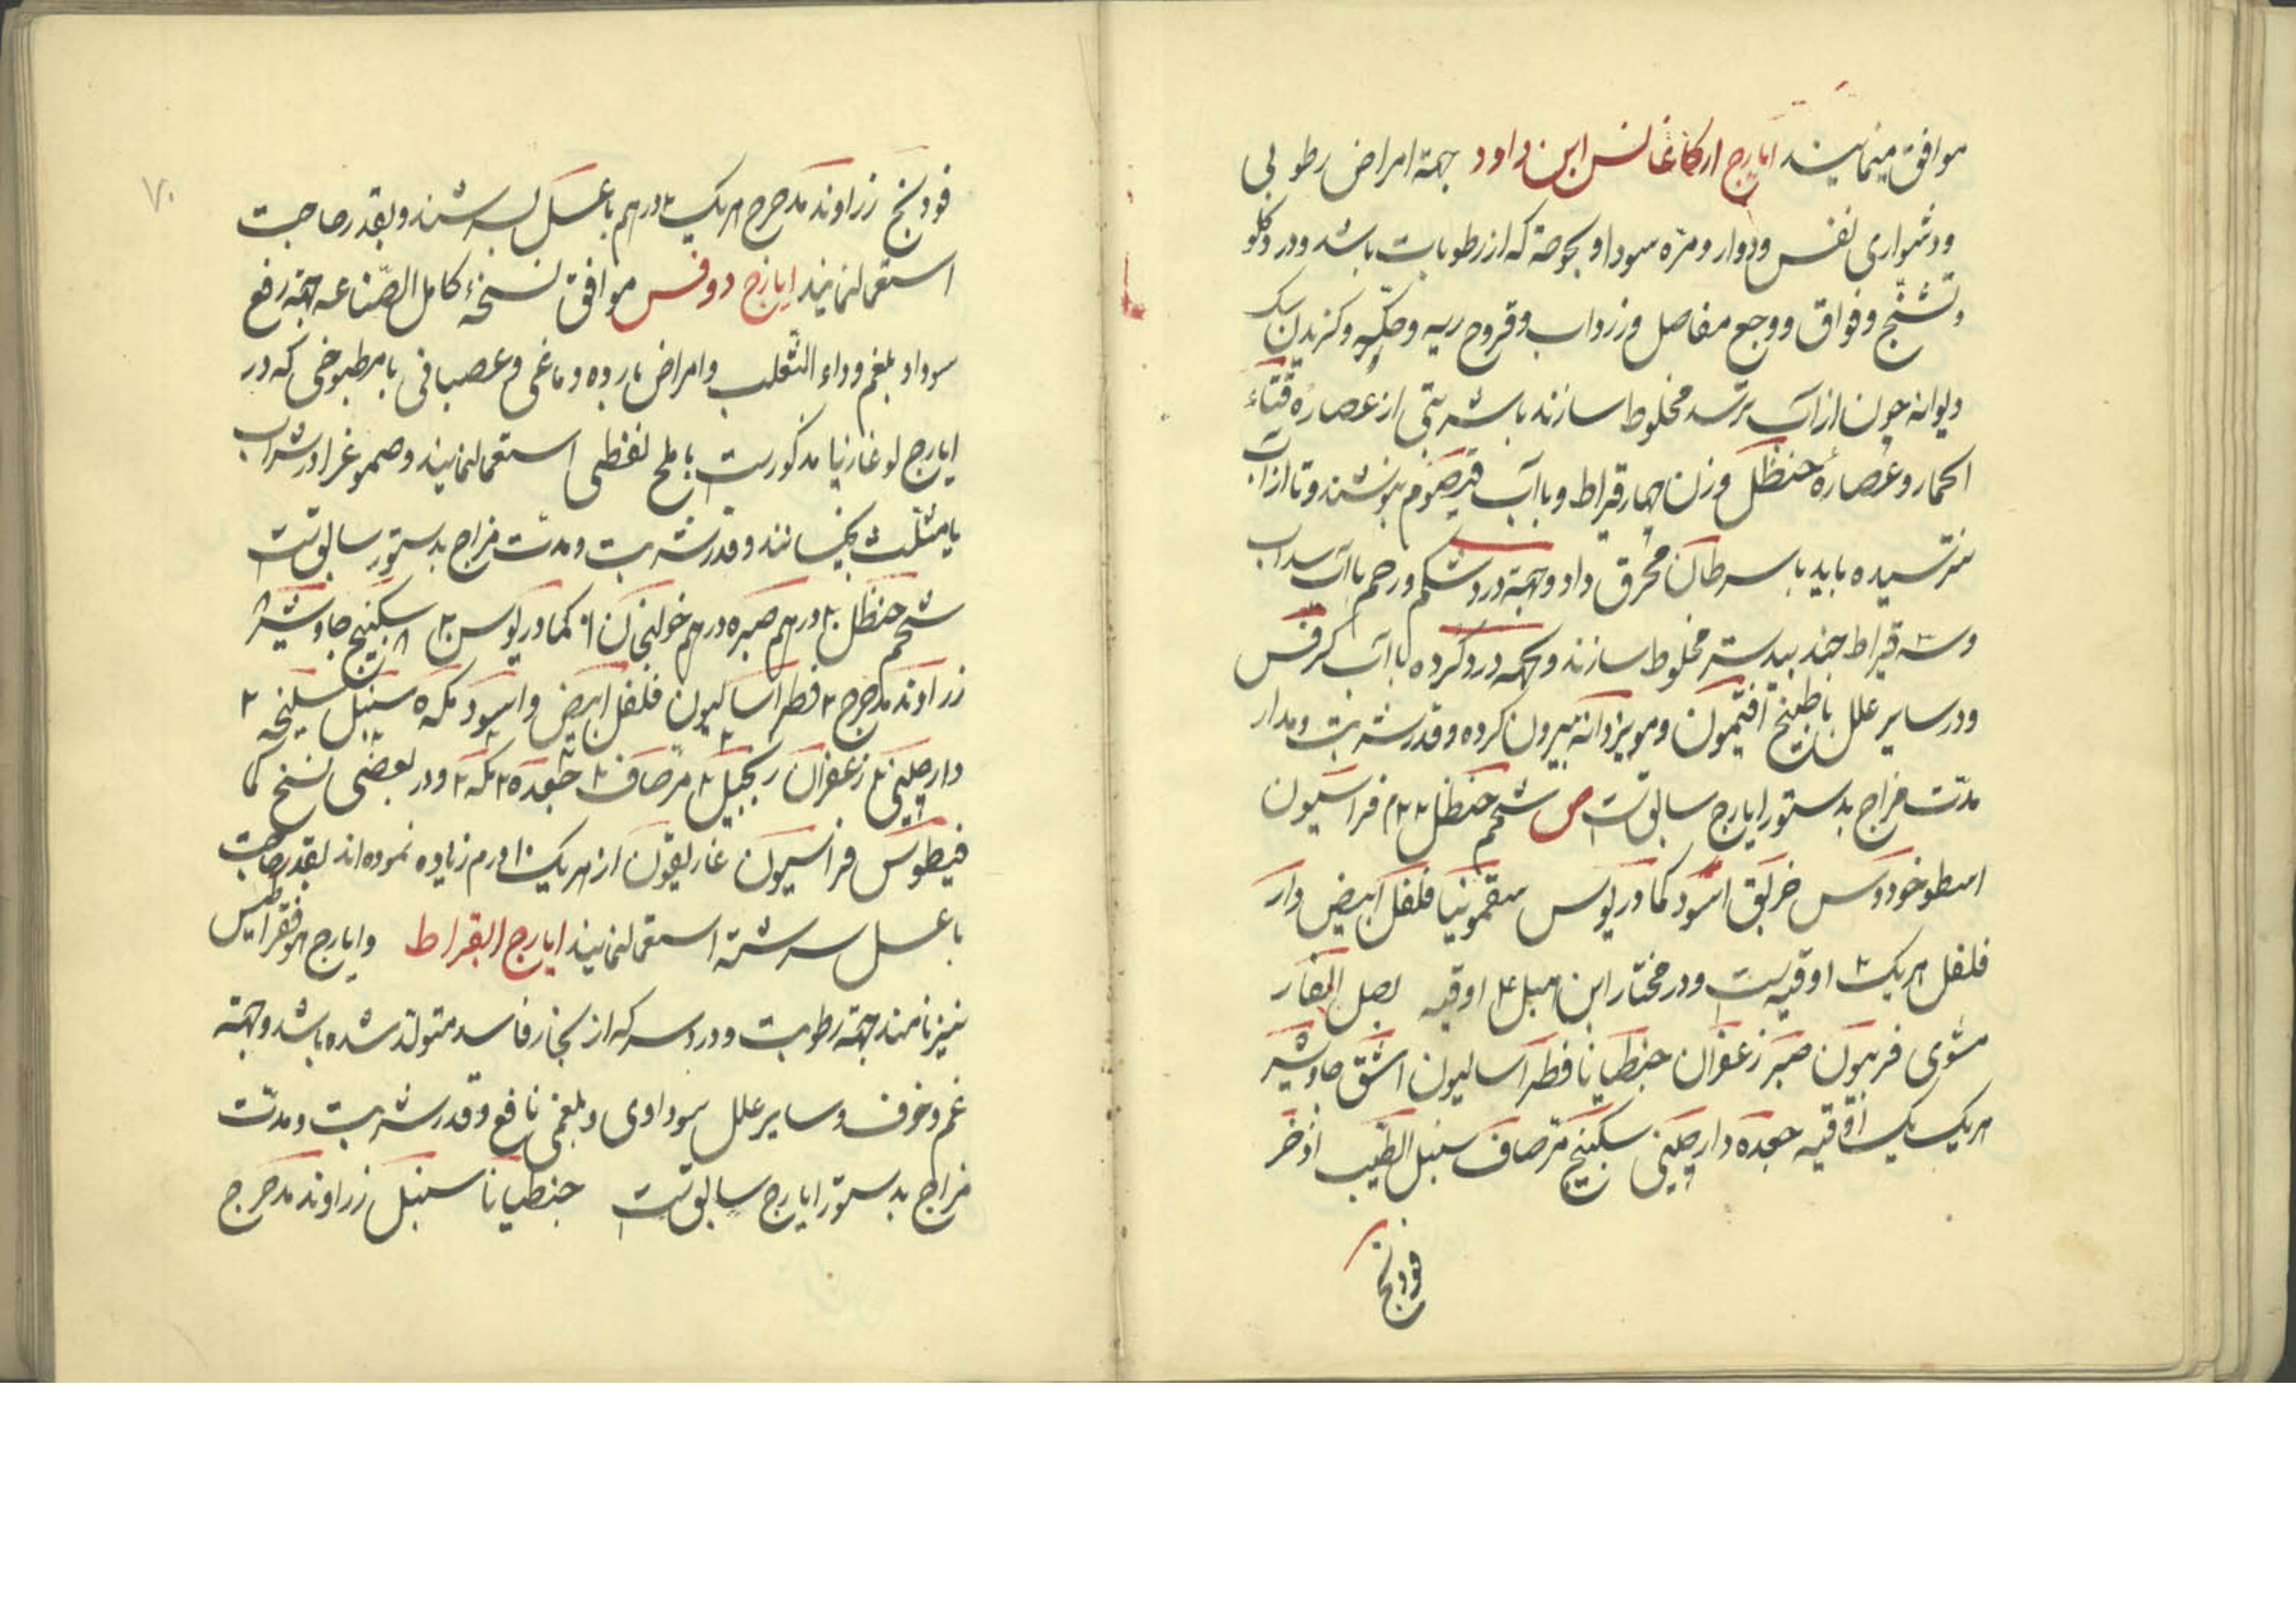 موافق مینمایند ایارج ارکاغانس ابن داود جهة امراض رطوبی
ودشواری نفس ودوار ومرّه سودا وبحوحة که از رطوبات باشد ودرد کلو
وتشنّج وفواق ووجع مفاصل وزرداب وقروح ریه وحکّه وکزیدن سک
دیوانه چون از آب ترسد مخلوط سازند باشربتی از عصارهٔ قثاء
الحمار وعصارهٔ حنظل وزن چهار قیراط وبا آب قیصوم بنوشند وتا از آب
نترسیده باید با سرطان محرق داد وجهة درد شکم ورحم با آب سداب
وسه قیراط جند بیدستر مخلوط سازند وجهة درد کرده با آب کرفس
ودر سایر علل با طبیخ افتیمون ومویز دانه بیرون کرده وقدر شربت ومدار
مدّت مزاج بدستور ایارج سابق است ص شحم حنظل ۲۲م فراسیون
اسطوخودوس خربق اسود کمادریوس سقمونیا فلفل ابیض دار
فلفل هریک ۲ اوقیه است ودر مختار ابن هبل ۴ اوقیه بصل الفار
مشوی فربیون صبر زعفران جنطیانا فطراسالیون اشق جاوشیر
هریک یک اوقیه جعده دارچینی سکبینج مر صاف سنبل الطیب اذخر
فودنج
۷۰
فودنج زراوند مدحرج هریک ۲ درهم با عسل بسرشند وبقدر حاجت
استعمال نمایند ایارج دوفس موافق نسخهٔ کامل الصّناعه جهة رفع
سودا وبلغم وداء الثعلب وامراض بارده دماغی وعصبانی با مطبوخی که در
ایارج لوغاریا مذکور است با ملح نفطی استعمال نمایند وصموغ را در شراب
یا مثلّث بخیسانند وقدر شربت ومدّت مزاج بدستور سابق است
شحم حنظل ۲۰ درهم صبر ۵ درهم خولنجان ۹ کمادریوس ۲۰ سکبینج جاوشیر ۸
زراوند مدحرج ۲ فطراسالیون فلفل ابیض واسود مکه ۵ سنبل سلیخه ۲
دارچینی زعفران زنجبیل ۲ مر صاف ۲ جعده ۲ مکه ۲ ودر بعضی نسخ کما
فیطوس فراسیون غاریقون از هریک ۱۰ درم زیاده نموده اند بقدر حاجت
با عسل سرشته استعمال نمایند ایارج البقراط وایارج هوفقراطیس
نیز نامند جهة رطوبت ودرد سر که از بخار فاسد متولد شده باشد وجهة
غم وخوف وسایر علل سوداوی وبلغمی نافع وقدر شربت ومدّت
مزاج بدستور ایارج سابق است جنطیانا سنبل زراوند مدحرج